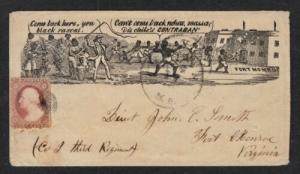 Come back here, you
black rascal.
Can't come back nohow, massa;
Dis chile's CONTRABAN'
FORT MONROE
Lieut John E. Smith
Fort Monroe
Virginia
(Co I third Regiment)